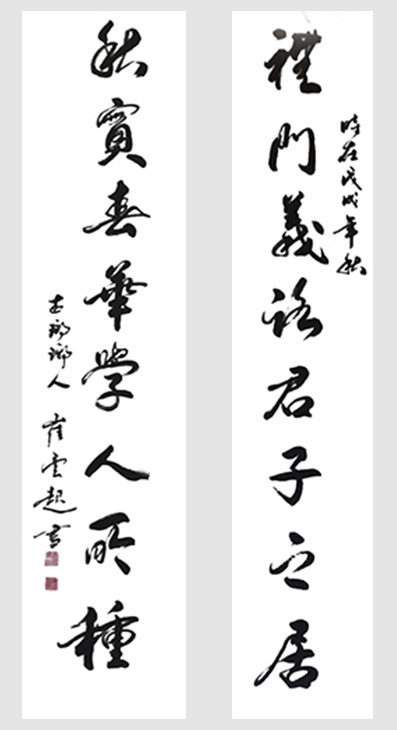 時在戊戌年秋
禮門義路君子之居
秋實春華學人所種
古瑯琊人 崔雲書